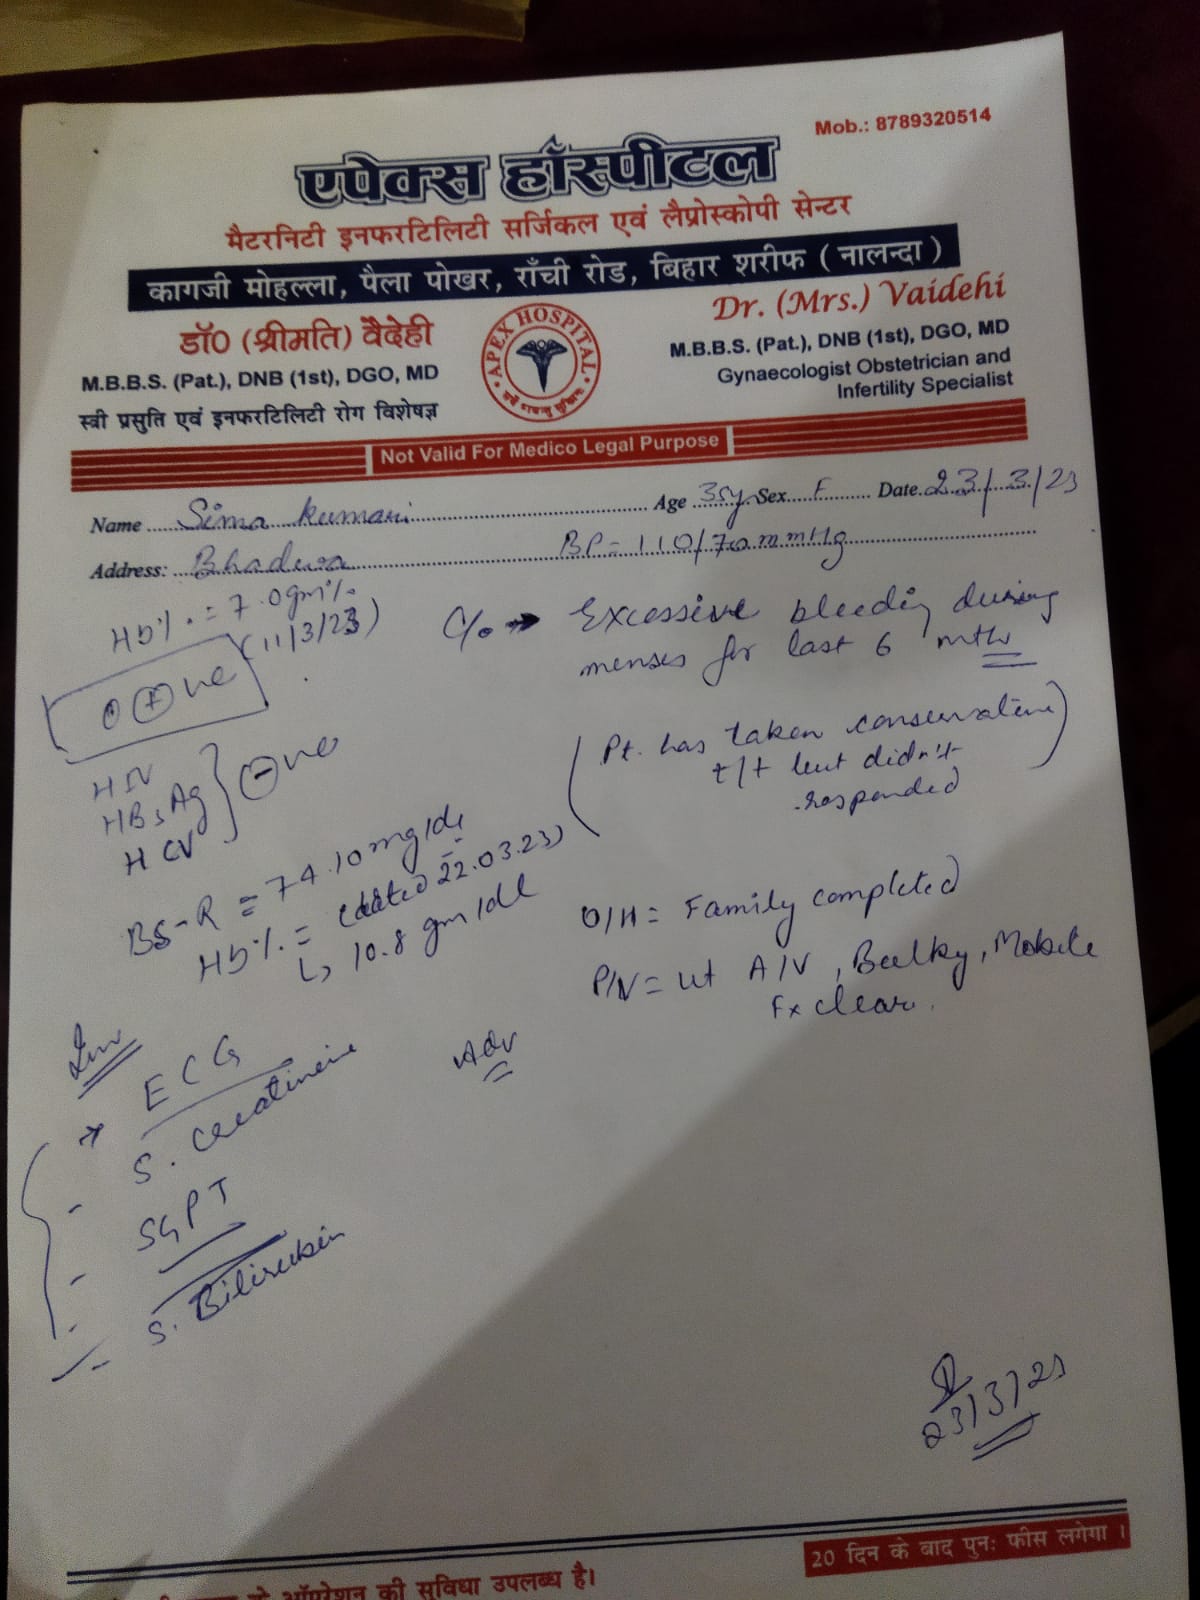 Mob.: 8789320514
एपेक्स हॉस्पीटल
मैटरनिटी इनफरटिलिटी सर्जिकल एवं लैप्रोस्कोपी सेन्टर
कागजी मोहल्ला, पैला पोखर, राँची रोड, बिहार शरीफ ( नालन्दा )
डॉ0 (श्रीमति) वैदेही
M.B.B.S. (Pat.), DNB (1st), DGO, MD
स्त्री प्रसुति एवं इनफरटिलिटी रोग विशेषज्ञ
APEX HOSPITAL
Dr. (Mrs.) Vaidehi
M.B.B.S. (Pat.), DNB (1st), DGO, MD
Gynaecologist Obstetrician and
Infertility Specialist
Not Valid For Medico Legal Purpose
Name Sima kumari Age 35y Sex F Date 23/3/23
Address: BP = 110/70 mmHg
Hb%. = 7.0gm%
(11/3/23)
O ⊕ve
HIV
HBsAg
HCV
⊖ve
BS-R = 74.10mg/dl
Hb%. = (dated 22.03.23)
↳ 10.8 gm/dl
C/o → Excessive bleeding during
menses for last 6 mths
(Pt. has taken conservative
t/t but didn't
responded)
O/H = Family completed
P/V = ut A/V, Bulky, Mobile
Fx clear.
Inv
→ ECG
- S. Creatinine
- SGPT
- S. Bilirubin
Adv
23/3/23
20 दिन के बाद पुनः फीस लगेगा ।
ऑपरेशन की सुविधा उपलब्ध है।